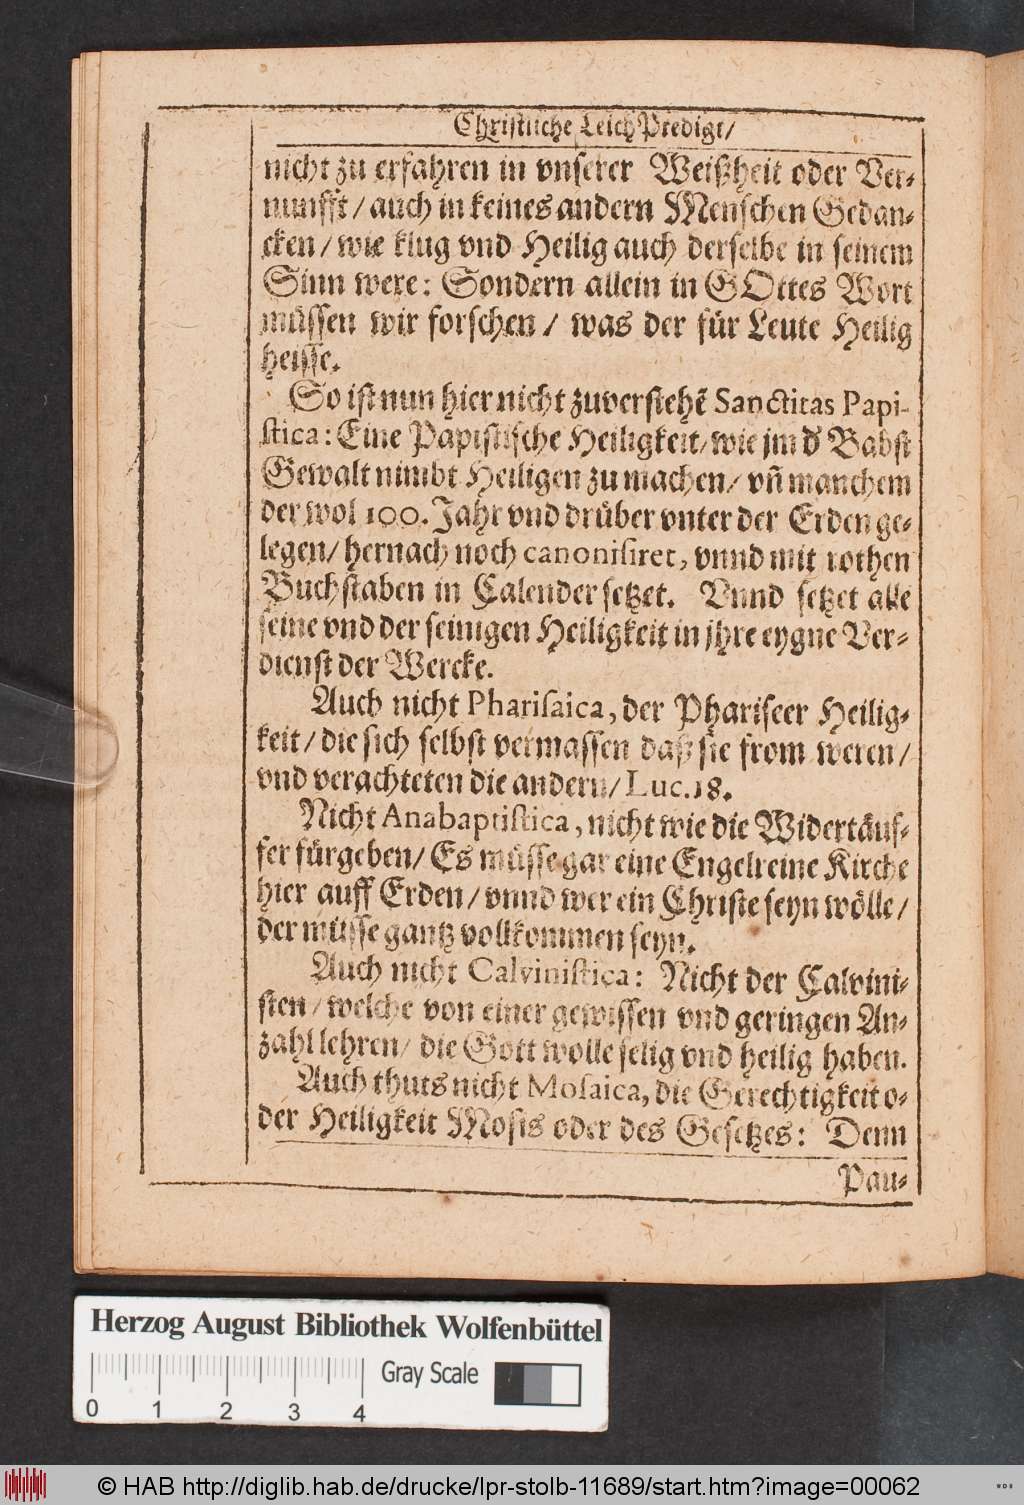 Christliche LeichPredigt/
nicht zu erfahren in vnserer Weißheit oder Ver-
nunfft/ auch in keines andern Menschen Gedan-
cken/ wie klug vnd Heilig auch derselbe in seinem
Sinn were: Sondern allein in GOttes Wort
müssen wir forschen/ was der für Leute Heilig
heisse.
So ist nun hier nicht zuverstehẽ Sanctitas Papi-
stica: Eine Papistische Heiligkeit/ wie jm d' Babst
Gewalt nimbt Heiligen zu machen/ vñ manchem
der wol 100. Jahr vnd drüber vnter der Erden ge-
legen/ hernach noch canonisiret, vnnd mit rothen
Buchstaben in Calender setzet. Vnnd setzet alle
seine vnd der seinigen Heiligkeit in jhre eygne Ver-
dienst der Wercke.
Auch nicht Pharisaica, der Phariseer Heilig-
keit/ die sich selbst vermassen daß sie from weren/
vnd verachteten die andern/ Luc. 18.
Nicht Anabaptistica, nicht wie die Widertäuf-
fer fürgeben/ Es müsse gar eine Engelreine Kirche
hier auff Erden/ vnnd wer ein Christe seyn wölle/
der müsse gantz vollkommen seyn.
Auch nicht Calvinistica: Nicht der Calvini-
sten/ welche von einer gewissen vnd geringen An-
zahl lehren/ die Gott wolle selig vnd heilig haben.
Auch thuts nicht Mosaica, die Gerechtigkeit o-
der Heiligkeit Mosis oder des Gesetzes: Denn
Pau-
Herzog August Bibliothek Wolfenbüttel
Gray Scale
0 1 2 3 4
© HAB http://diglib.hab.de/drucke/lpr-stolb-11689/start.htm?image=00062